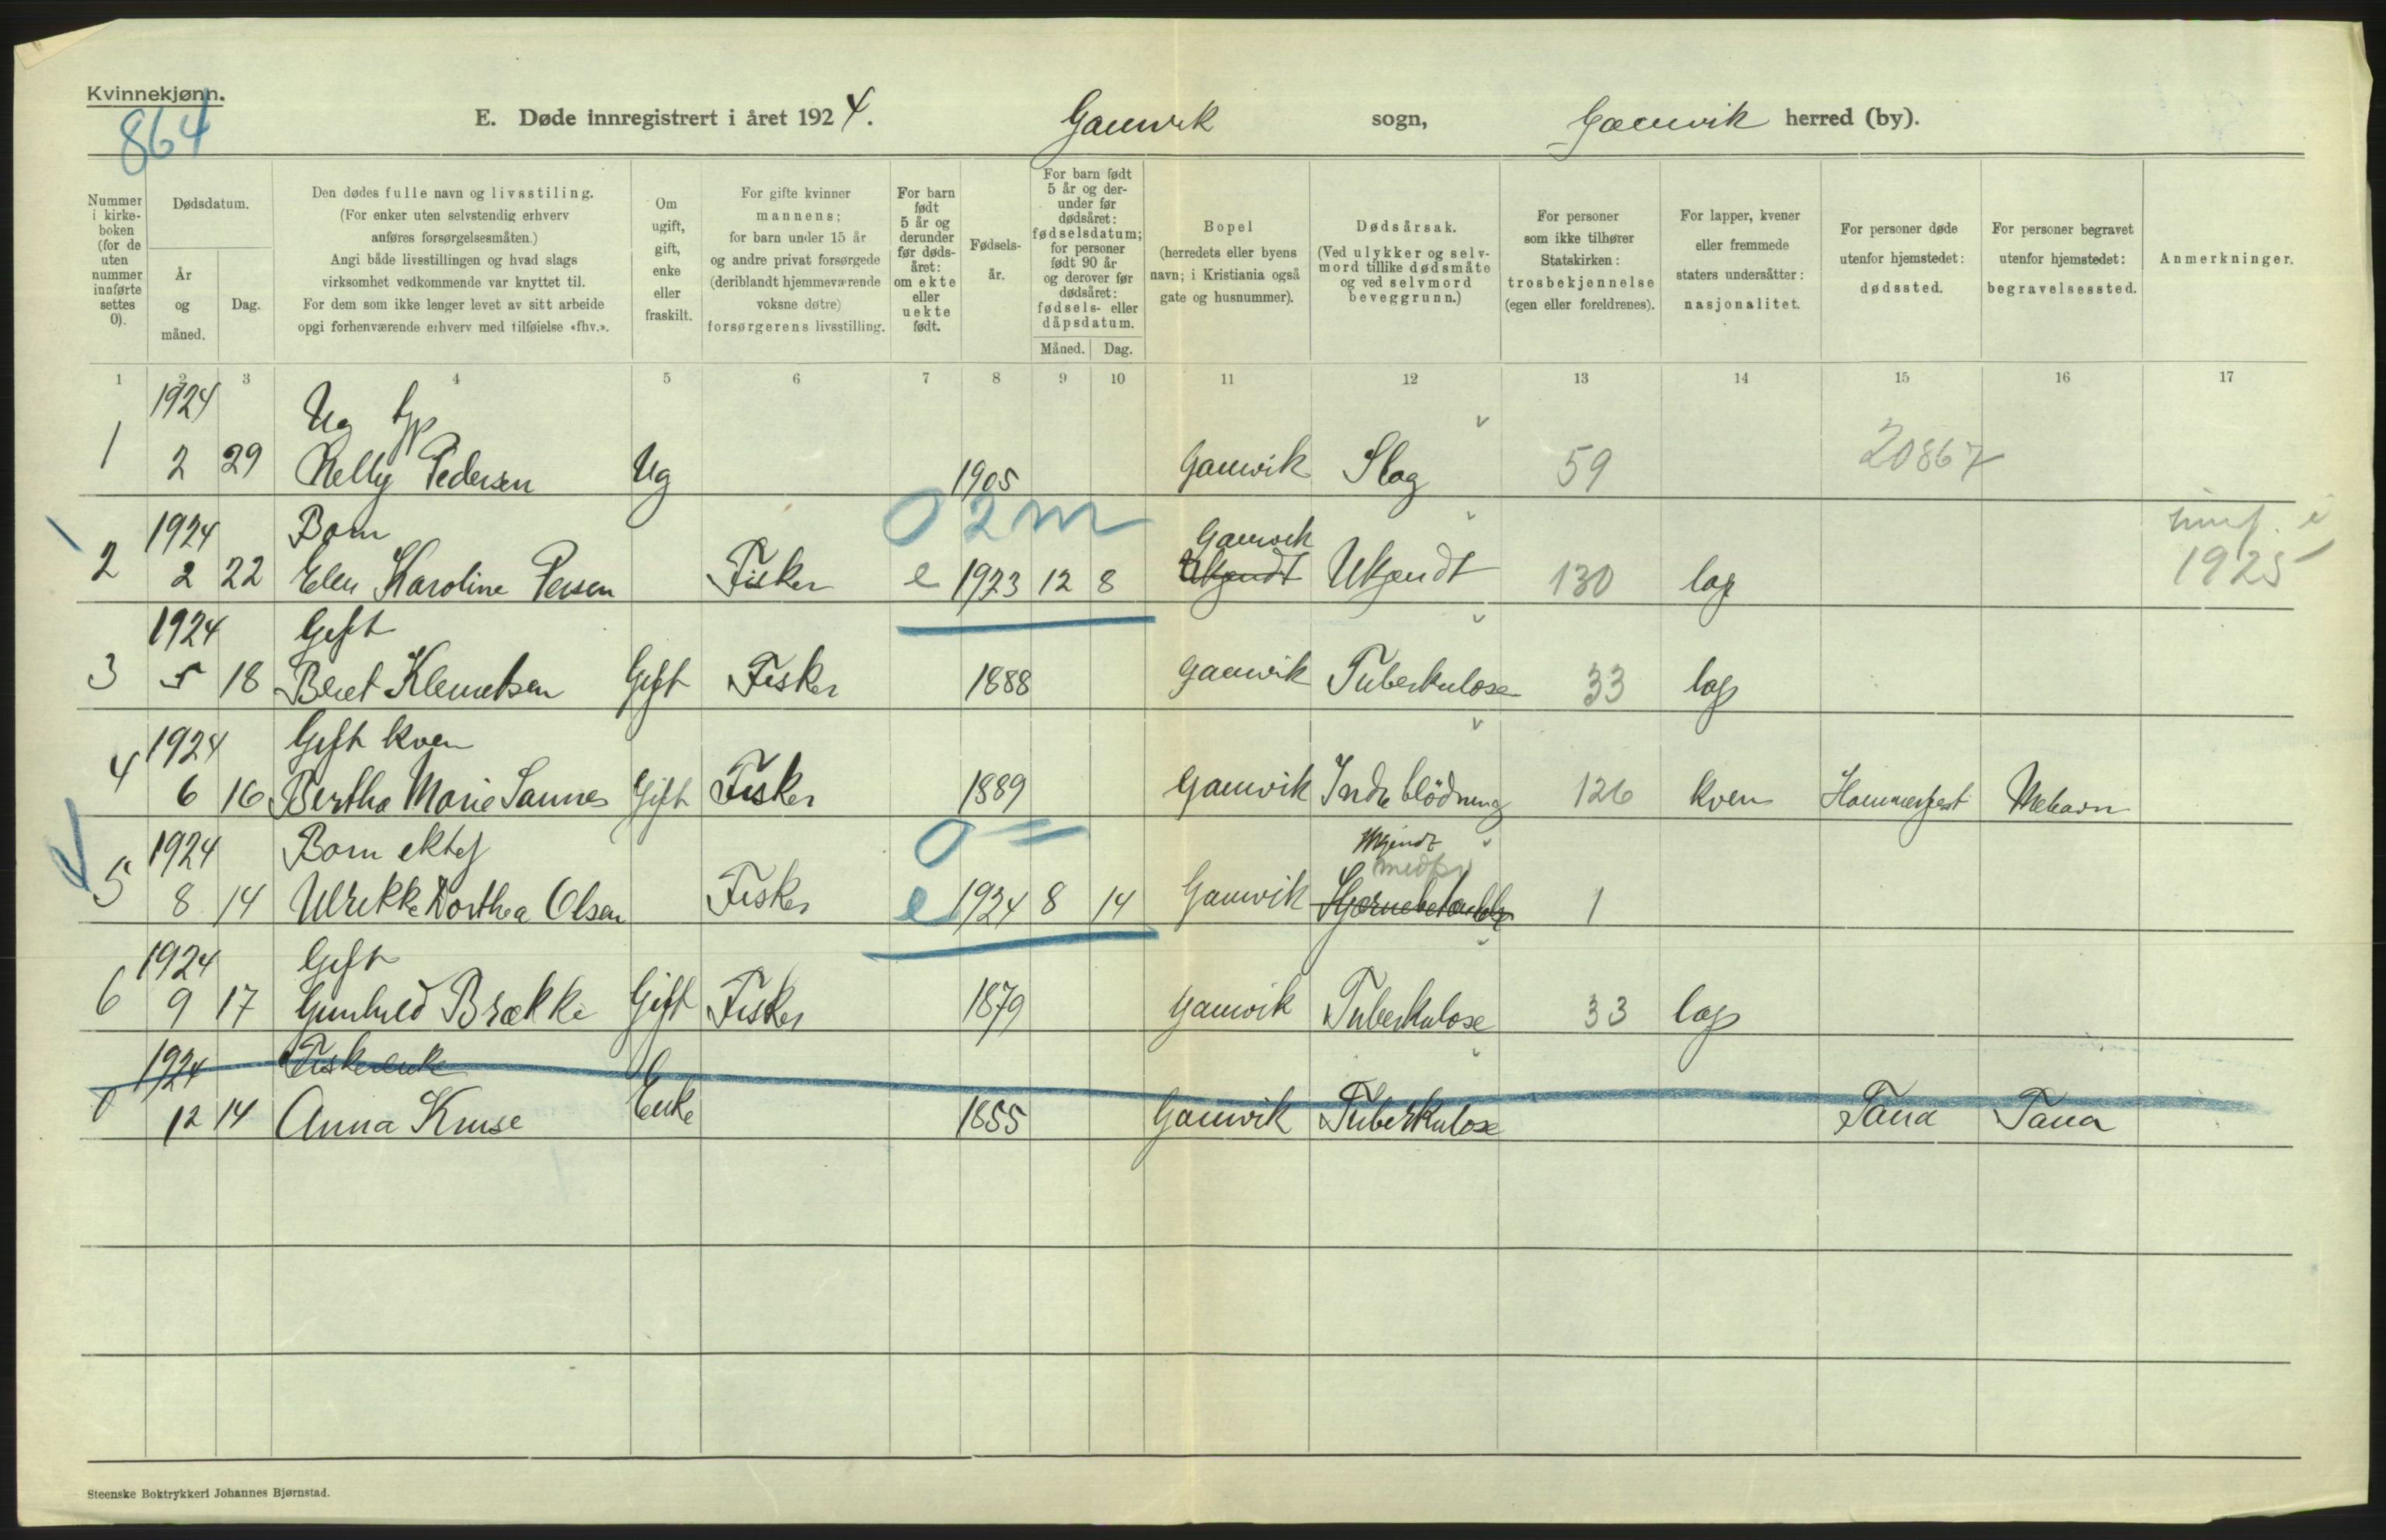 Kvinnekjønn.
864
E. Døde innregistrert i året 1924. Gamvik sogn, Gamvik herred (by).
Nummer i kirke-boken (for de uten nummer innførte settes 0).
Dødsdatum.
År og måned.
Dag.
Den dødes fulle navn og livsstilling.
(For enker uten selvstendig erhverv
anføres forsørgelsesmåten.)
Angi både livsstillingen og hvad slags
virksomhet vedkommende var knyttet til.
For dem som ikke lenger levet av sitt arbeide
opgi forhenværende erhverv med tilføielse «fhv.».
Om ugift, gift, enke eller fraskilt.
For gifte kvinner
mannens;
for barn under 15 år
og andre privat forsørgede
(deriblandt hjemmeværende
voksne døtre)
forsørgerens livsstilling.
For barn født 5 år og derunder før dødsåret: om ekte eller uekte født.
Fødsels-år.
For barn født 5 år og der-under før dødsåret: fødselsdatum; for personer født 90 år og derover før dødsåret: fødsels- eller dåpsdatum.
Måned. Dag.
Bopel
(herredets eller byens
navn; i Kristiania også
gate og husnummer).
Dødsårsak.
(Ved ulykker og selv-
mord tillike dødsmåte
og ved selvmord
beveggrunn.)
For personer
som ikke tilhører
Statskirken:
trosbekjennelse
(egen eller foreldrenes).
For lapper, kvener
eller fremmede
staters undersåtter:
nasjonalitet.
For personer døde
utenfor hjemstedet:
dødssted.
For personer begravet
utenfor hjemstedet:
begravelsessted.
Anmerkninger.
1 2 3 4 5 6 7 8 9 10 11 12 13 14 15 16 17
1924 Ug
1 2 29 Nelly Pedersen Ug 1905 Gamvik Slag 59 20867
0 2 m
1924 Barn Gamvik innf. i
2 2 22 Elen Karoline Persen Fisker e 1923 12 8 Ukjendt Ukjendt 130 lap 1925
1924 Gift
3 5 18 Beret Klemetsen Gift Fisker 1888 Gamvik Tuberkulose 33 lap
1924 Gift kven
4 6 16 Bertha Marie Sannes Gift Fisker 1889 Gamvik Indre blødning 126 kven Hammerfest Mehavn
0 =
1924 Barn ektef Ukjendt
medf
5 8 14 Ulrikke Dorthea Olsen Fisker e 1924 8 14 Gamvik 1
1924 Gift
6 9 17 Gunhild Brække Gift Fisker 1879 Gamvik Tuberkulose 33 lap
1924 Fiskerenke
0 12 14 Anna Kruse Enke 1855 Gamvik Tuberkulose Tana Tana
Steenske Boktrykkeri Johannes Bjørnstad.